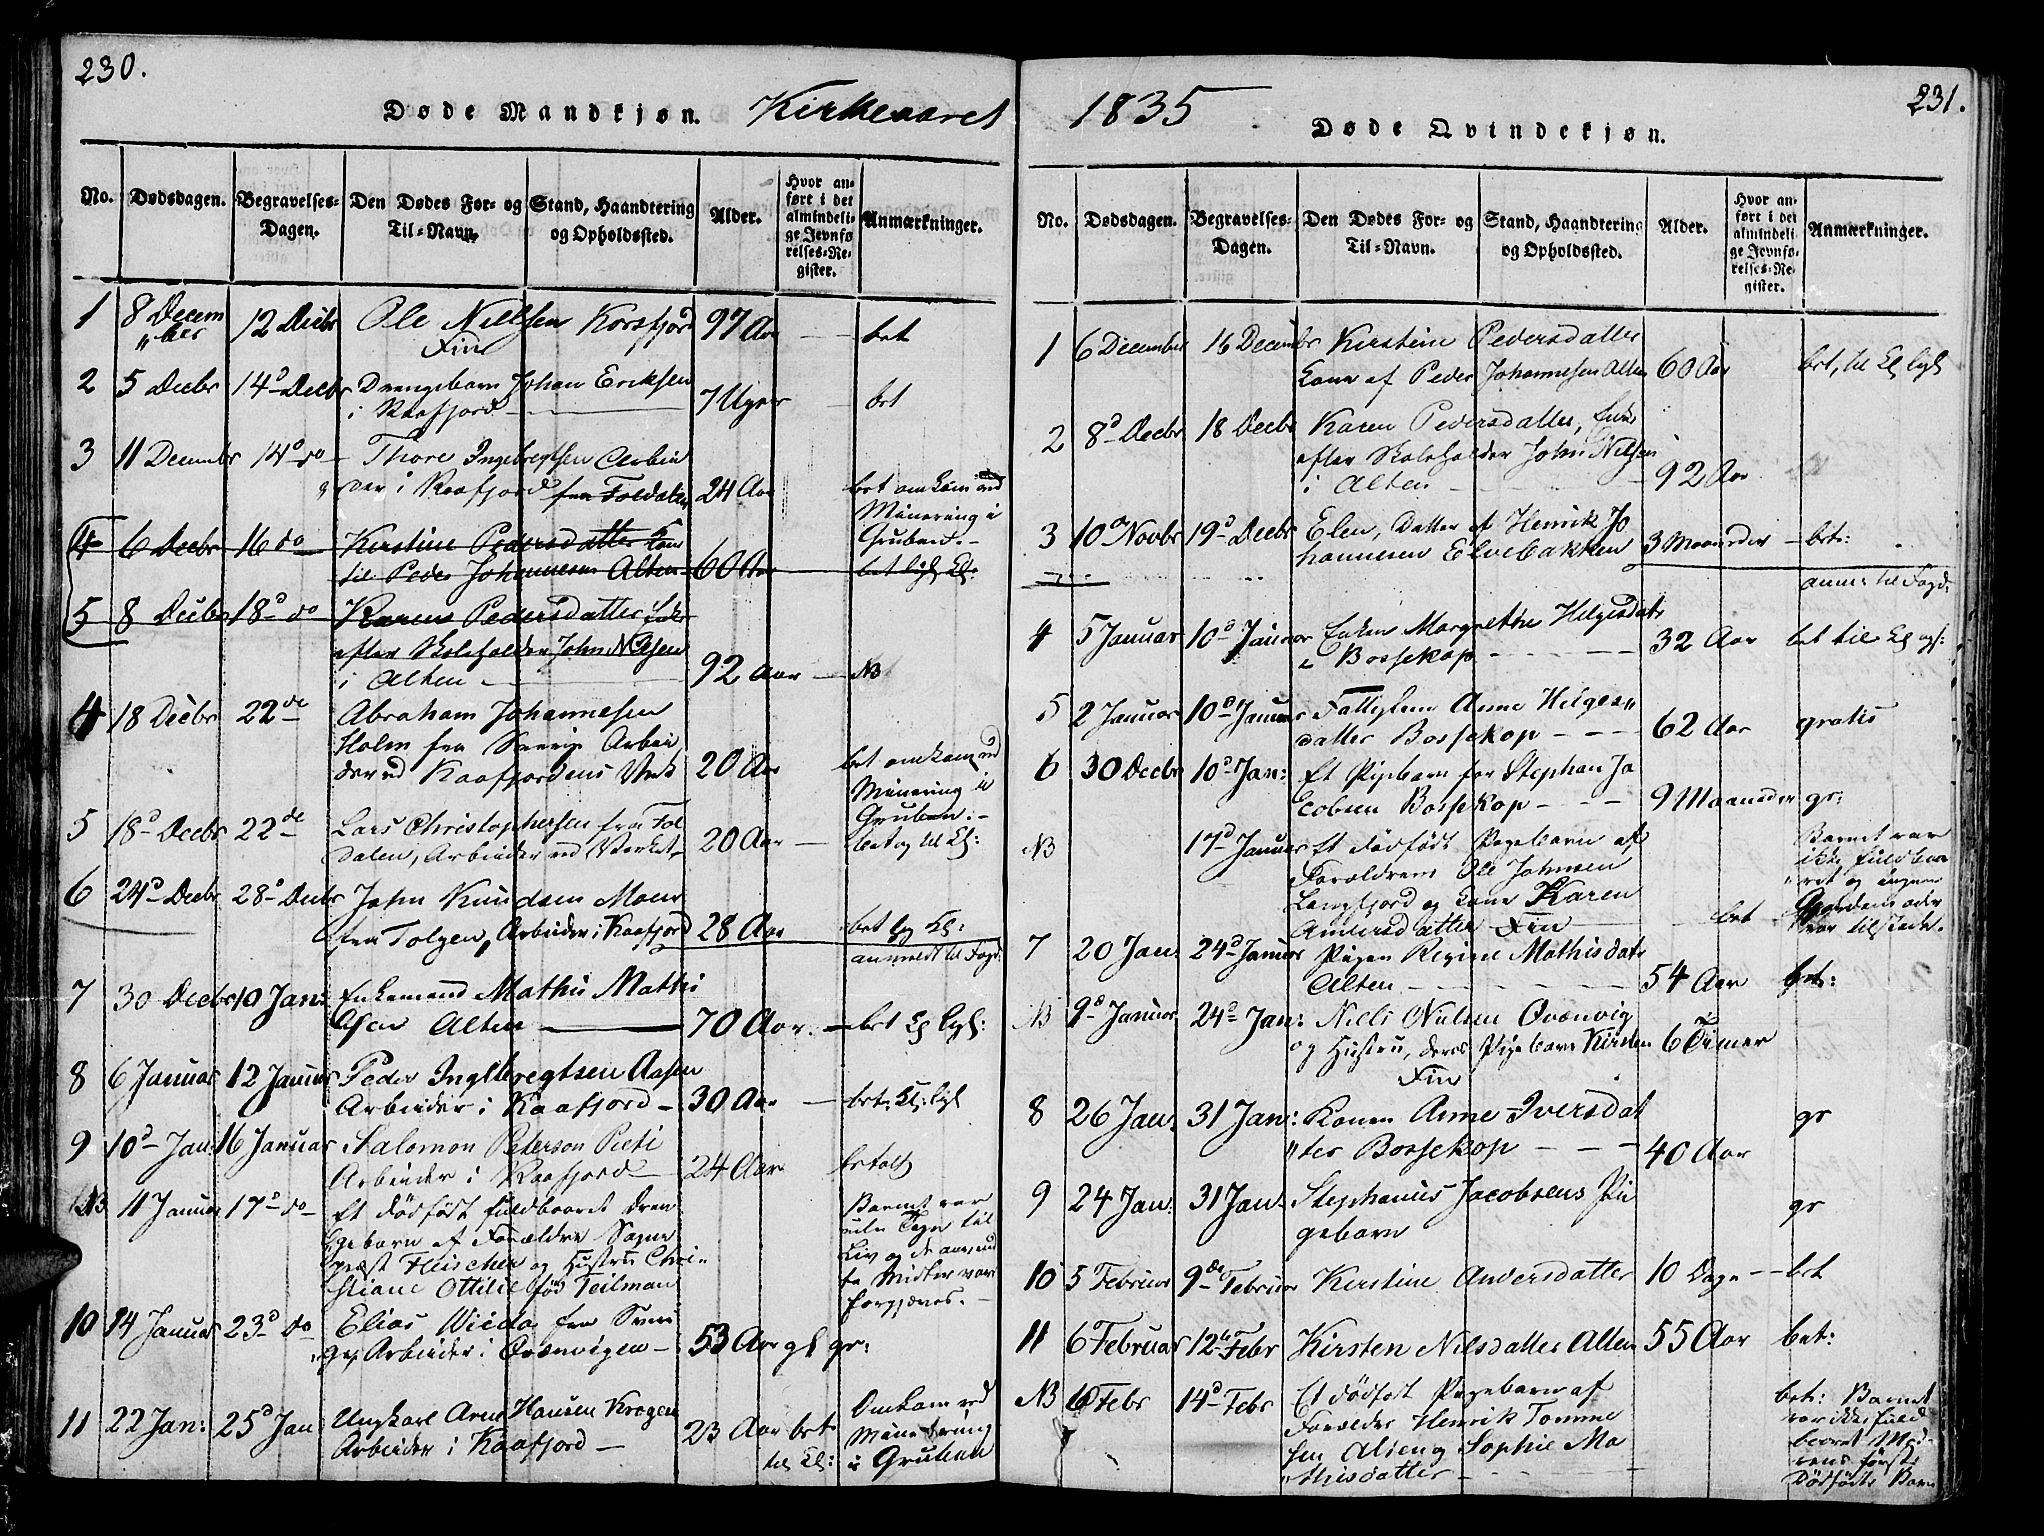 230.
Døde Mandkjøn.
Kirkeaaret
No.
Dødsdagen.
Begravelses-
Dagen.
Den Dødes For- og
Til-Navn.
Stand, Haandtering
og Opholdssted.
Alder.
Hvor an-
ført i det
almindeli-
ge Jevnfø
relses-Re-
gister.
Anmærkninger.
1 8 Decem 12 Decbr Ole Nillsen Korsfjord 97 Aar — bet
"ber Fin
2 5 Decbr 14d Decbr Drengebarn Johan Eriksen
i Kaafjord — 7 Uger bet
3 11 Decembr 14d do Thore Ingebregtsen Arbei
der i Kaafjord fra Foldalen 24 Aar bet omkom ved
Minering i
Gruben.
4 6 Decbr 16 do Kirstine Pedersdatter Kone
til Peder Johannesen Alten 60 Aar bet ligl Kl:
5 8 Decbr 18d do Karen Pedersdatter Enke
efter Skoleholder John Nilsen
i Alten — 92 Aar — NB
4 18 Decbr 22de Abraham Johannesen
Holm fra Sverig Arbei
der ved Kaafjordens Verk 20 Aar bet omkom ved
Minering i
Gruben.
5 18d Decbr 22de Lars Christophersen fra Fol
dalen, Arbeider ved Verket 20 Aar — bet og til Kl:
6 24d Decbr 28d Decbr John Knudsen Moen
fra Tolgen, Arbeider i Kaafjord 28 Aar bet og Kl:
anmeldt til Fogd.
7 30 Decbr 10 Jan: Enkemand Mathis Mathi
sen Alten — 70 Aar. — bet Kl ligl:
8 6 Januar 12 Januar Peder Inglebregtsen Aasen
Arbeider i Kaafjord — 30 Aar — bet: Kl: ligl
9 10d Jan: 16 Januar Salomon Peterson Pieti
Arbeider i Kaafjord — 24 Aar betalt
NB 11 Januar 17d do Et dødfødt fuldbaaret Dren
gebarn af Forældre Sogne
præst Fleischer og Hustru Chri-
stiane Ottilie fød Teilman
Barnet var
uden Tegn til
Liv og de anvend
te Midler vare
forgjæves.
10 14 Januar 23d do Elias Wieda fra Sver
ge, Arbeider i Qvænvigen — 53 Aar gl gr:
11 22 Jan: 25d Jan Ungkarl Arne Hansen Krogen
Arbeider i Kaafjord — 23 Aar bet
til Kl:
Omkom ved
Minering
i Gruben
1835
Døde Qvindekjøn.
231.
No.
Dødsdagen.
Begravelses-
Dagen.
Den Dødes For- og
Til-Navn.
Stand, Haandtering
og Opholdssted.
Alder.
Hvor an-
ført i det
almindeli-
ge Jevnfø-
relses-Re-
gister.
Anmærkninger.
1 6 December 16 December Kirstine Pedersdatter
Kone af Peder Johannesen Alten 60 Aar bet, til Kl ligl
2 8d Decbr 18 Decbr Karen Pedersdatter, Enke
efter Skoleholder John Nilsen
i Alten — 92 Aar
3 10de Novbr 19d Decbr Elen, Datter af Henrik Jo
hannesen Elvebakken 3 Maaneder — bet:
anm: til Fogd.
4 5 Januar 10d Januar Enken Margrethe Helgesdatr
i Bossekop — 32 Aar bet til Kl ogs:
5 2 Januar 10d Januar Fattiglem Anne Helges"
datter Bossekop — 62 Aar gratis
6 30 Decbr 10d Jan: Et Pigebarn for Stephan Ja
cobsen Bossekop — 9 Maaneder gr:
NB 17d Januar Et dødfødt Pigebarn af
Forældrene Ole Johnsen
Langfjord og Kone Karen
Andersdatter Fin — bet
Barnet var
ikke fuldbaa
ret og ingen
Gjordemoder
var tilstede.
7 20 Jan. 24d Januar Pigen Regine Mathisdatr
Alten — 54 Aar bet:
NB 9d Januar 24d Jan: Niels Nielsen Qvænvig
og Hustru, deres Pigebarn Kirsten 6 Timer
Fin
8 26 Jan. 31 Jan: Konen Anne Iversdat
"ter Bossekop — 40 Aar gr
9 24 Jan. 31 Jan. Stephanus Jacobsens Pi
gebarn gr
10 5 Februar 9de Februar Kirstine Andersdatter 10 Dage — bet
11 6 Februar 12te Febr Kirsten Nilsdatter Alten 55 Aar bet:
NB 6 Febr 14d Febr Et dødfødt Pigebarn af
Forældre Henrik Tomme
sen Alten og Sophie Ma
"thisdatter —
bet: Barnet
var ikke fuld
baaret Mod-
rens første
Dødfødte Barn